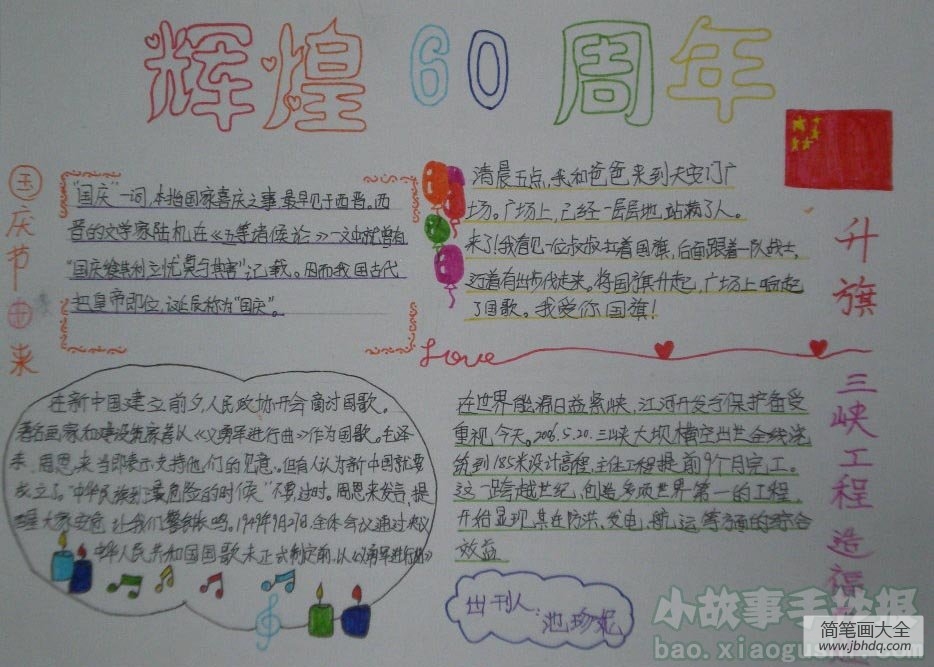 辉煌60周年
国庆节由来
"国庆"一词,本指国家喜庆之事,最早见于西晋。西
晋的文学家陆机在《五等诸侯论》一文中就曾有
"国庆独共利主忧莫与其害"记载。因而我国古代
把皇帝即位,诞辰称为"国庆"。
清晨五点,我和爸爸来到天安门广
场。广场上,已经一层层地站满了人。
来了!我看见一位叔叔扛着国旗,后面跟着一队战士,
迈着有步伐走来。将国旗升起,广场上响起
了国歌。我爱你国旗!
升旗
Love
在新中国建立前夕,人民政协开会商讨国歌。
著名画家和建设筑家善从《义勇军进行曲》作为国歌。毛泽
来、周恩来当即表示支持他们的见意。但有人认为新中国就要
成立了。"中华民族到了最危险的时候"不要过时。周恩来发言,提
醒大家安危,让我们警钟长鸣。1949年9月27日,全体会议通过决议
中华人民共和国国歌未正式制定前,以《义勇军进行曲》
在世界能源日益紧峡,江河开发与保护备受
重视今天。2006.5.20.三峡大坝横空出世全线浇
统到185米设计高程,主体工程提前9个月完工。
这一跨越世纪,创造多项世界第一的工程,
开始显现其在防洪、发电、航运等方面的综合
效益
三峡工程造福
出刊人
池珍妮
小故事手抄报
bao.xiaogushi.com
简笔画大全
www.jbhdq.com